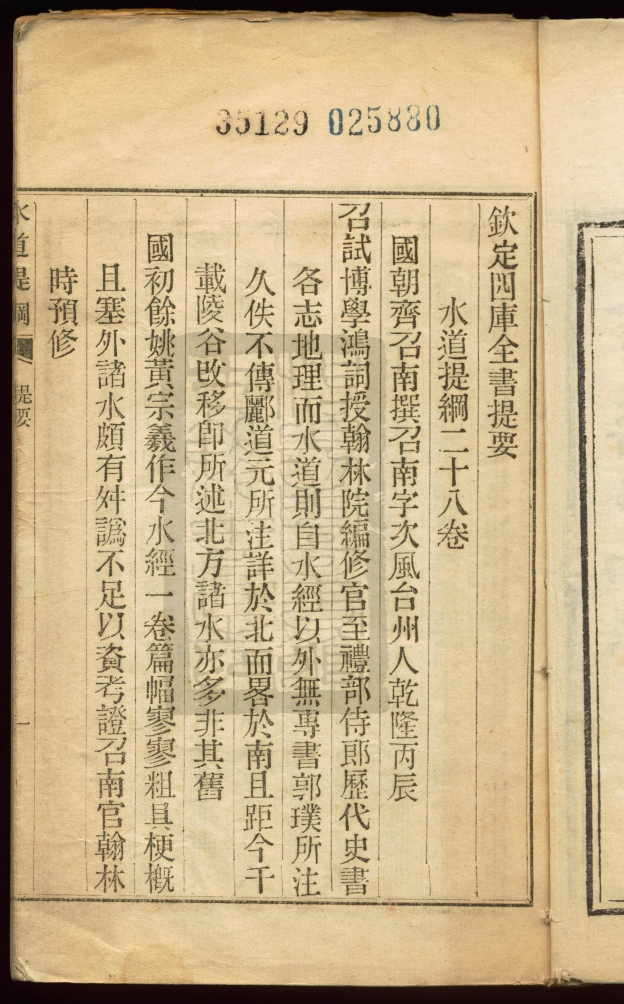 35129 025880
欽定四庫全書提要
水道提綱二十八卷
國朝齊召南撰召南字次風台州人乾隆丙辰
召試博學鴻詞授翰林院編修官至禮部侍郎歷代史書
各志地理而水道則自水經以外無專書郭璞所注
久佚不傳酈道元所注詳於北而畧於南且距今千
載陵谷改移卽所述北方諸水亦多非其舊
國初餘姚黃宗羲作今水經一卷篇幅寥寥粗具梗概
且塞外諸水頗有舛譌不足以資考證召南官翰林
時預修
水道提綱 提要 一